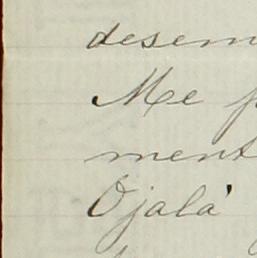 desem
Me p
ment
Ojalá